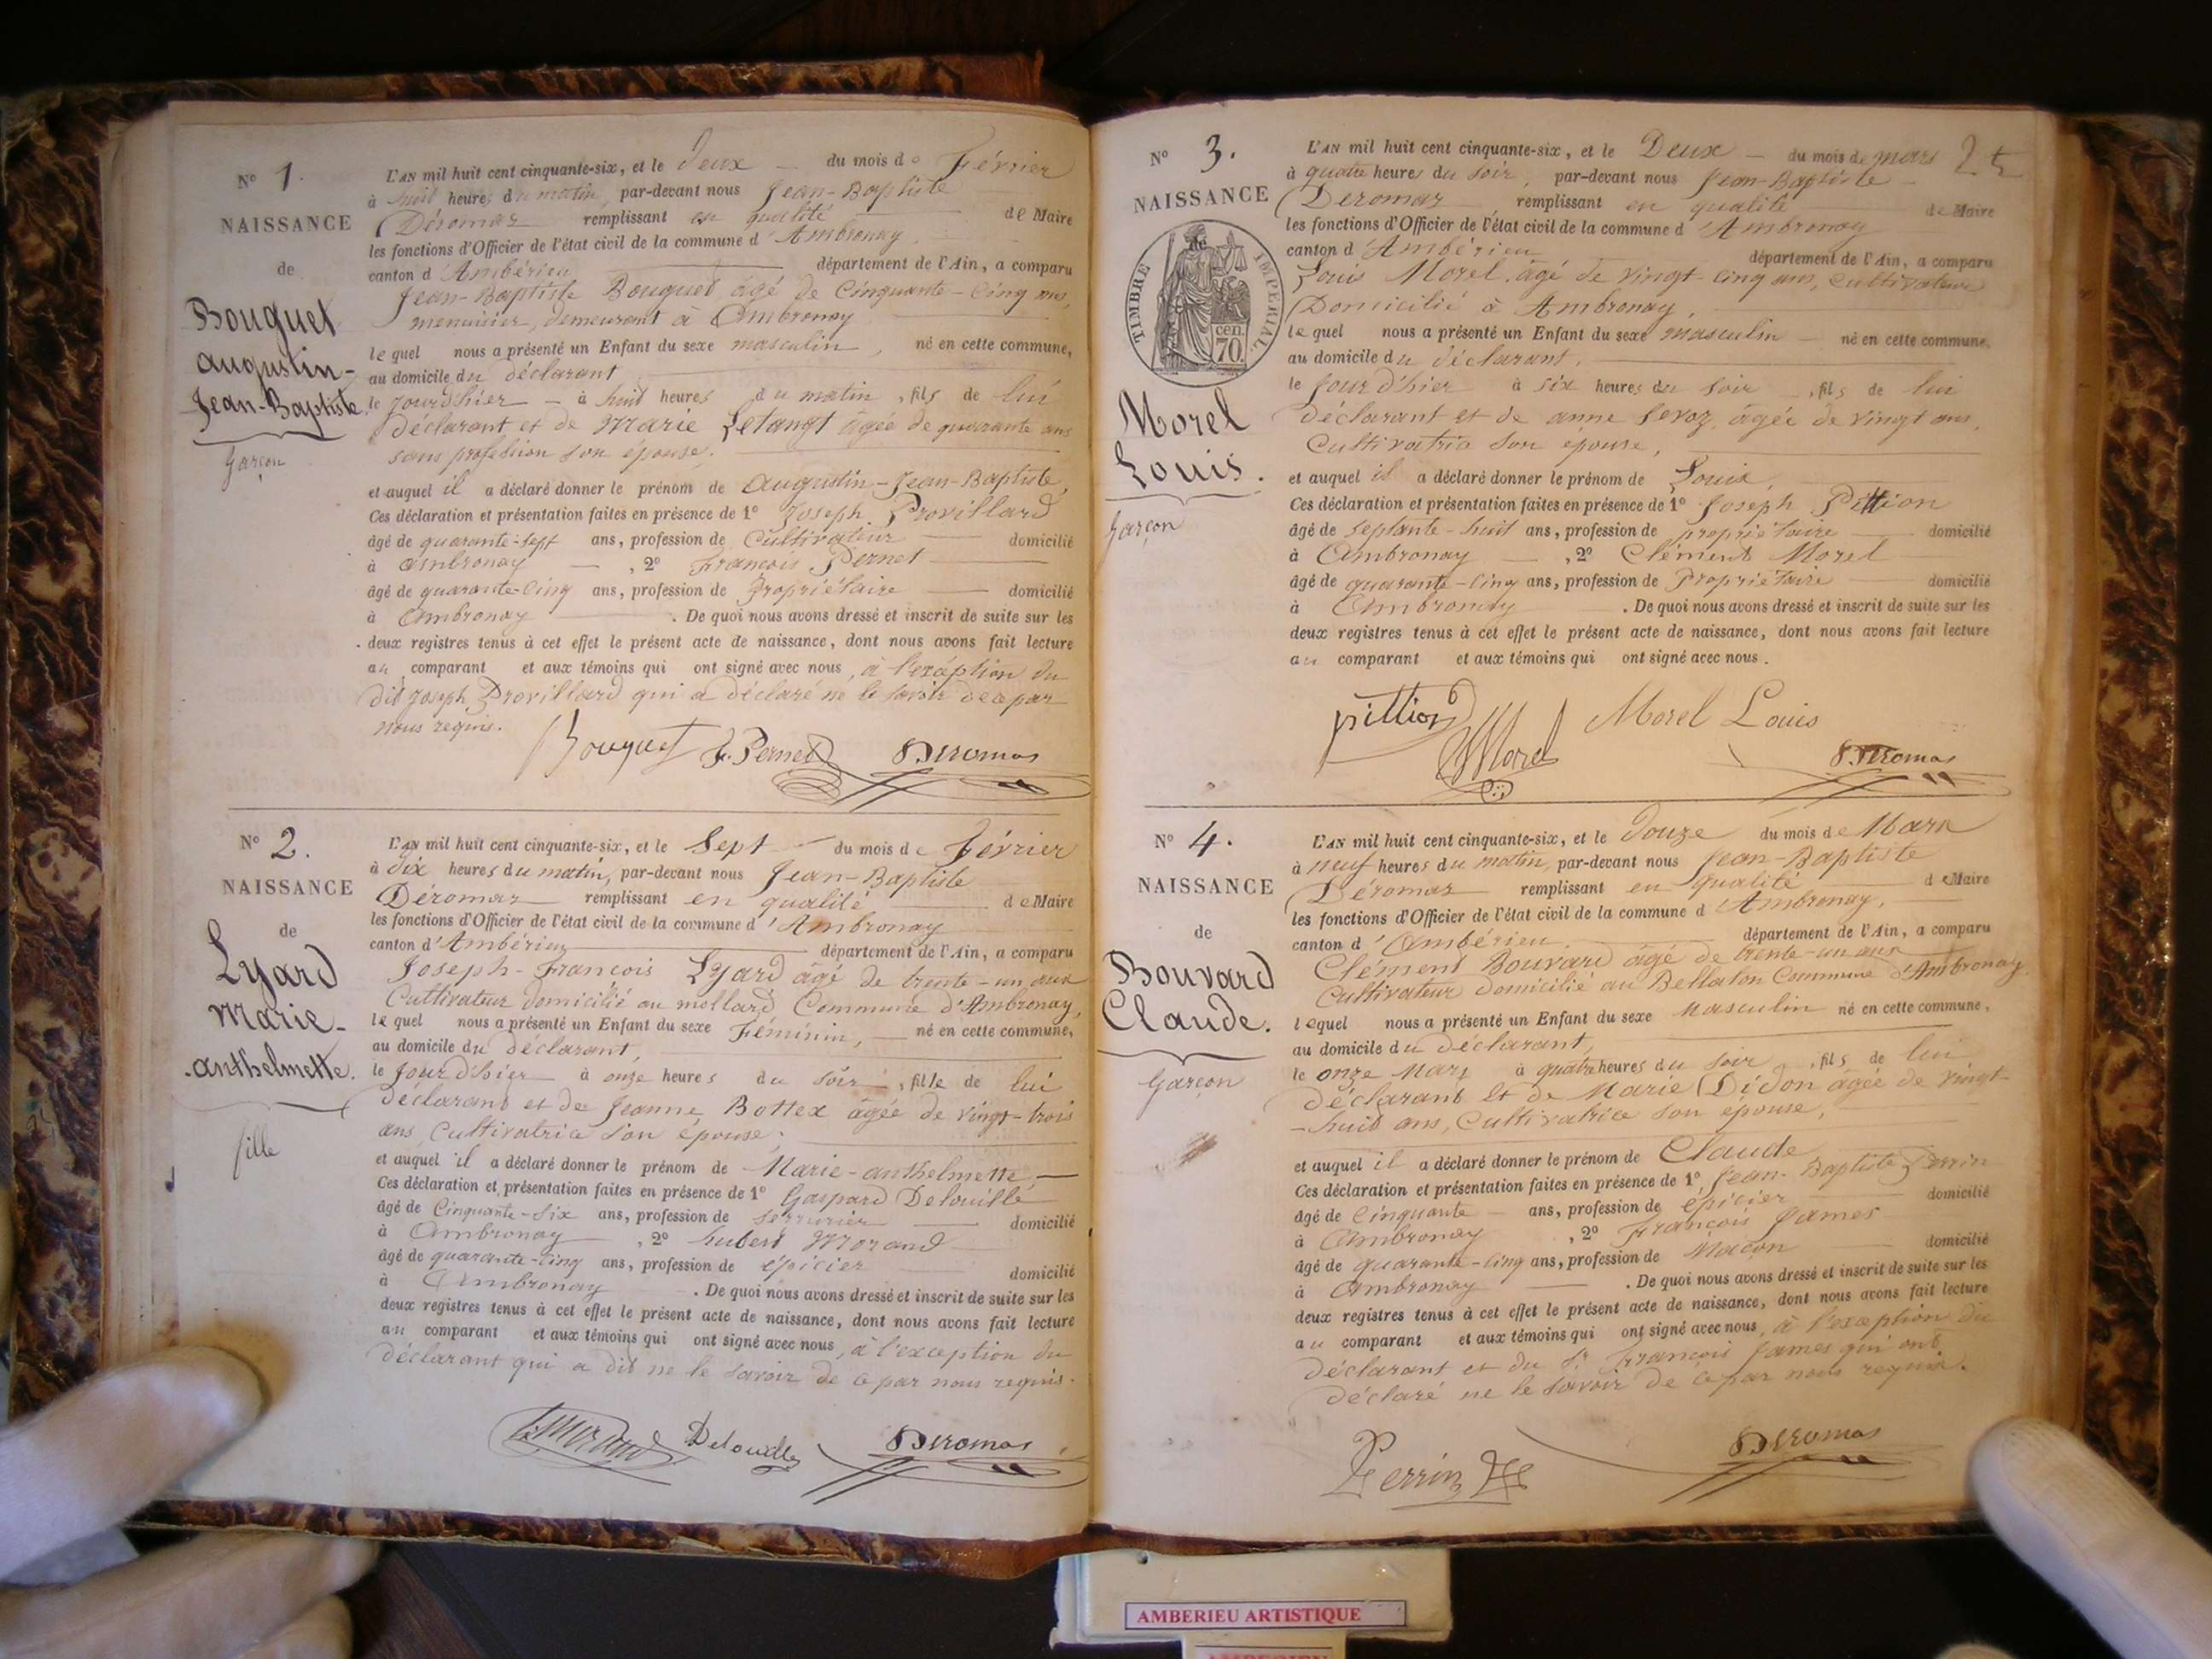 N° 1.
NAISSANCE
de
Bouquet
augustin-
Jean-Baptiste
Garçon
L'AN mil huit cent cinquante-six, et le Deux du mois de Février
à huit heures du matin, par-devant nous Jean-Baptiste
Déromas remplissant en qualité de Maire
les fonctions d'Officier de l'état civil de la commune d'Ambronay
canton d'Ambérieu département de l'Ain, a comparu
Jean-Baptiste Bouquet, âgé de Cinquante-Cinq ans,
menuisier, demeurant à Ambronay
lequel nous a présenté un Enfant du sexe masculin, né en cette commune,
au domicile du déclarant
le Jourd'hier à huit heures du matin, fils de lui
Déclarant et de Marie Letangt âgée de quarante ans
sans profession son épouse.
et auquel il a déclaré donner le prénom de Augustin-Jean-Baptiste,
Ces déclaration et présentation faites en présence de 1° Joseph Provillard
âgé de quarante-sept ans, profession de Cultivateur domicilié
à Ambronay, 2° François Pernet
âgé de quarante-Cinq ans, profession de Propriétaire domicilié
à Ambronay. De quoi nous avons dressé et inscrit de suite sur les
deux registres tenus à cet effet le présent acte de naissance, dont nous avons fait lecture
au comparant et aux témoins qui ont signé avec nous, à l'exéption du
dit Joseph Provillard qui a déclaré ne le savoir de ce par
nous requis.
Bouquet F. Pernet Déromas
N° 2.
NAISSANCE
de
Lyard
Marie-
anthelmette.
fille
L'AN mil huit cent cinquante-six, et le Sept du mois de Février
à dix heures du matin, par-devant nous Jean-Baptiste
Déromas remplissant en qualité de Maire
les fonctions d'Officier de l'état civil de la commune d'Ambronay
canton d'Ambérieu département de l'Ain, a comparu
Joseph-François Lyard âgé de trente-un ans
Cultivateur domicilié au mollard Commune d'Ambronay,
lequel nous a présenté un Enfant du sexe Féminin, né en cette commune,
au domicile du déclarant,
le Jour d'hier à onze heures du soir, fille de lui
déclarant et de Jeanne Bottex âgée de vingt-trois
ans Cultivatrice son épouse;
et auquel il a déclaré donner le prénom de Marie-anthelmette,
Ces déclaration et présentation faites en présence de 1° Gaspard Delouille
âgé de Cinquante-six ans, profession de serrurier domicilié
à Ambronay, 2° hubert Morand
âgé de quarante-cinq ans, profession de épicier domicilié
à Ambronay. De quoi nous avons dressé et inscrit de suite sur les
deux registres tenus à cet effet le présent acte de naissance, dont nous avons fait lecture
au comparant et aux témoins qui ont signé avec nous, à l'exception du
déclarant qui a dit ne le savoir de ce par nous requis.
Morand Delouille Déromas
2
N° 3.
NAISSANCE
TIMBRE IMPERIAL.
cen.
70.
Morel
Louis.
Garçon
L'AN mil huit cent cinquante-six, et le Deux du mois de mars
à quatre heures du soir, par-devant nous Jean-Baptiste
Deromas remplissant en qualité de Maire
les fonctions d'Officier de l'état civil de la commune d'Ambronay
canton d'Ambérieu département de l'Ain, a comparu
Louis Morel, âgé de vingt-Cinq ans, Cultivateur
Domicilié à Ambronay,
lequel nous a présenté un Enfant du sexe masculin né en cette commune,
au domicile du déclarant,
le Jour d'hier à six heures du soir, fils de lui
déclarant et de anne Sevoz, âgée de vingt ans,
Cultivatrice son epouse,
et auquel il a déclaré donner le prénom de Louis,
Ces déclaration et présentation faites en présence de 1° Joseph Pittion
âgé de septante-huit ans, profession de propriétaire domicilié
à Ambronay, 2° Clément Morel
âgé de quarante-Cinq ans, profession de Propriétaire domicilié
à Ambronay. De quoi nous avons dressé et inscrit de suite sur les
deux registres tenus à cet effet le présent acte de naissance, dont nous avons fait lecture
au comparant et aux témoins qui ont signé avec nous.
pittion Morel Morel Louis Déromas
N° 4.
NAISSANCE
de
Bouvard
Claude.
Garçon
L'AN mil huit cent cinquante-six, et le Douze du mois de Mars
à neuf heures du matin, par-devant nous Jean-Baptiste
Déromas remplissant en qualité de Maire
les fonctions d'Officier de l'état civil de la commune d'Ambronay,
canton d'Ambérieu département de l'Ain, a comparu
Clément Bouvard âgé de trente-un ans
Cultivateur domicilié au Bellaton Commune d'Ambronay
lequel nous a présenté un Enfant du sexe Masculin né en cette commune,
au domicile du déclarant,
le onze Mars à quatre heures du soir, fils de lui
déclarant et de Marie Didon âgée de vingt-
-huit ans, Cultivatrice son épouse,
et auquel il a déclaré donner le prénom de Claude
Ces déclaration et présentation faites en présence de 1° Jean-Baptiste Perrin
âgé de Cinquante ans, profession de épicier domicilié
à Ambronay, 2° François James
âgé de quarante-cinq ans, profession de Maçon domicilié
à Ambronay. De quoi nous avons dressé et inscrit de suite sur les
deux registres tenus à cet effet le présent acte de naissance, dont nous avons fait lecture
au comparant et aux témoins qui ont signé avec nous, à l'exception du
déclarant et du Sr François James qui ont
déclaré ne le savoir de ce par nous requis.
Perrin Déromas
AMBERIEU ARTISTIQUE